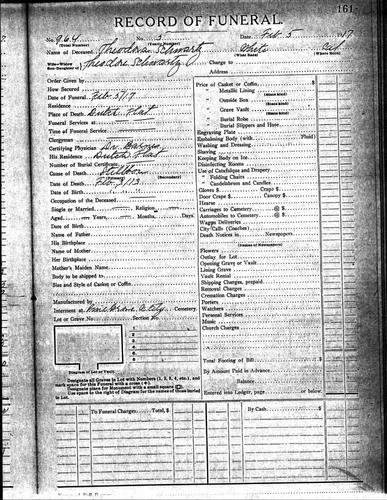 161
RECORD OF FUNERAL.
No. 964 (Total Number) No. 3 (Yearly Number) Date Feb. 5 1917
Name of Deceased Theodora Schwartz White (What Race) Cal (Where Born)
Wife—Widow Son-Daughter of Theodore Schwartz Charge to
Address
Order Given by
How Secured
Date of Funeral Feb 5/17
Residence
Place of Death Dutch Flat
Funeral Services at
Time of Funeral Service
Clergyman
Certifying Physician Dr
His Residence Dutch Flat
Number of Burial Certificate
Cause of Death Stillborn
(Primary) (Secondary)
Date of Death Feb 3/
Date of Birth
Occupation of the Deceased
Single or Married Religion
Aged Years Months Days
Date of Birth
Name of Father
His Birthplace
Name of Mother
Her Birthplace
Mother's Maiden Name
Body to be shipped to
Size and Style of Casket or Coffin
Manufactured by
Interment at Cemetery
Lot or Grave No. Section No.
1
2
3
4
5
Diagram of Lot or Vault
Designate all Graves in Lot with Numbers (1, 2, 3, 4, etc.), and
mark space for this Funeral with a cross (+).
Designate place for Monument with a small square
Use space to the right of Diagram for the names of those buried
in Lot.
Price of Casket or Coffin
" Metallic Lining
(State kind)
" Outside Box
(State kind)
" Grave Vault
(State kind)
" Burial Robe
" Burial Slippers and Hose
Engraving Plate
Embalming Body (with Fluid)
Washing and Dressing
Shaving
Keeping Body on Ice
Disinfecting Rooms
Use of Catafalque and Drapery
" Folding Chairs
" Candelabrum and Candles
Gloves $ Crape $
Door Crape $ Canopy $
Hearse
Carriages to Cemetery @ $
Automobiles to Cemetery @ $
Wagon Deliveries
City Calls (Coaches)
Death Notices in Newspapers
(Names of Newspapers)
Flowers
Outlay for Lot
Opening Grave or Vault
Lining Grave
Vault Rental
Shipping Charges, prepaid
Removal Charges
Cremation Charges
Porters
Watchers
Personal Services
Music
Church Charges
Total Footing of Bill
By Amount Paid in Advance
Balance
Entered into Ledger, page or below
To Funeral Charges Total, $
By Cash $